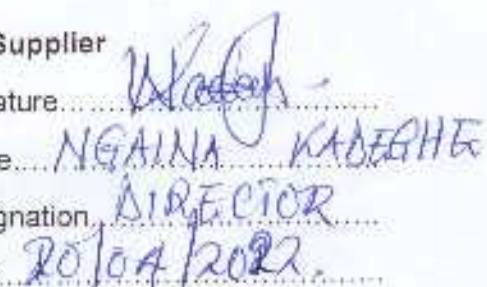 Supplier
ature.....
e.... NGAINA KADEGHE
gnation. DIRECTOR
20/04/2022.